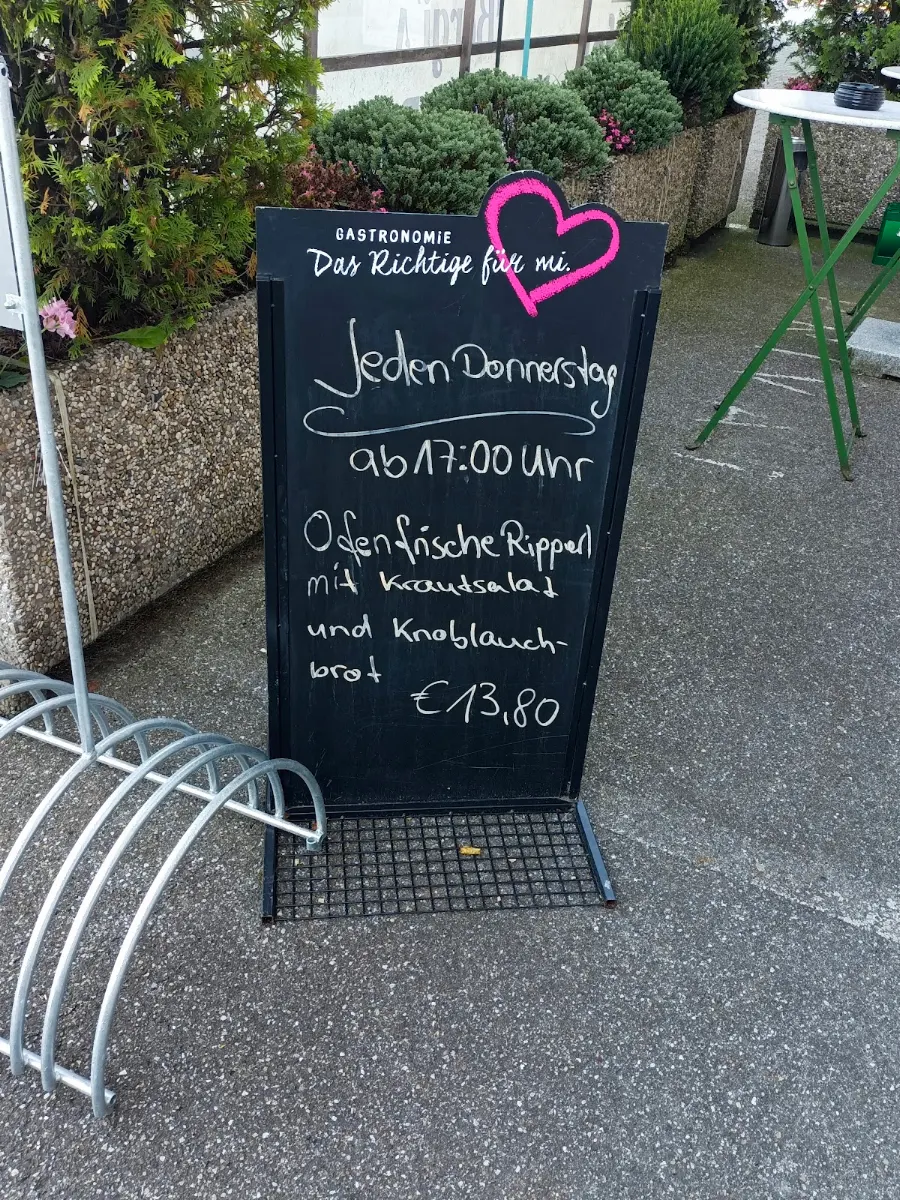 GASTRONOMiE
Das Richtige für mi.
Jeden Donnerstag
ab 17:00 Uhr
Ofenfrische Ripperl
mit Krautsalat
und Knoblauch-
brot
€13,80